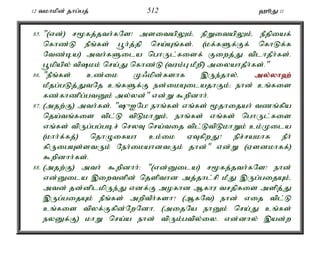 12 வமாமின் தாப்பத் 512 ஹூது 11
85. "(என்) சமூகத்தவர்களே! அளவையிலும், நிறுவையிலும், நீதியைக்
கொண்டு நீங்கள் பூர்த்தி செய்யுங்கள். (மக்களுக்குக் கொடுக்க
வேண்டிய) அவர்களுடைய பொருட்களைக் குறைத்து விடாதீர்கள்.
பூமியில் விஷமம் செய்து கொண்டு (வரம்பு மீறி) அலையாதீர்கள்."
86. "நீங்கள் உண்மை முஃமின்களாக இருந்தால், அல்லாஹ்
மீதப்படுத்துவதே உங்களுக்கு நன்மையுடையதாகும்; நான் உங்களை
கண்காணிப்பவனும் அல்லன்" என்று கூறினார்.
87. (அதற்கு) அவர்கள், "ஷுஐபே நாங்கள் எங்கள் மூதாதையர் வணங்கிய
தெய்வங்களை விட்டு விடுமாறும், நாங்கள் எங்கள் பொருட்களை
எங்கள் விருப்பப்படிச் செலவு செய்வதை விட்டுவிடுமாறும் உம்முடைய
(மார்க்கத்) தொழுகையா உம்மை ஏவுகிறது? நிச்சயமாக நீர்
கிருபையுள்ளவரும் நேர்மையானவரும் தான்" என்று (ஏளனமாகக்)
கூறினார்கள்.
88. (அதற்கு) அவர் கூறினார்: "(என்னுடைய) சமூகத்தவர்களே! நான்
என்னுடைய இறைவனின் தெளிவான அத்தாட்சி மீது இருப்பதையும்,
அவன் தன்னிடமிருந்து எனக்கு அழகான ஆகார வசதிகளை அளித்து
இருப்பதையும் நீங்கள் அறிவீர்களா? (ஆகவே) நான் எதை விட்டு
உங்களை விலக்குகின்றேனோ, (அதையே நானும் செய்து உங்கள்
நலனுக்கு) மாறு செய்ய நான் விரும்பவில்லை. என்னால் இயன்ற